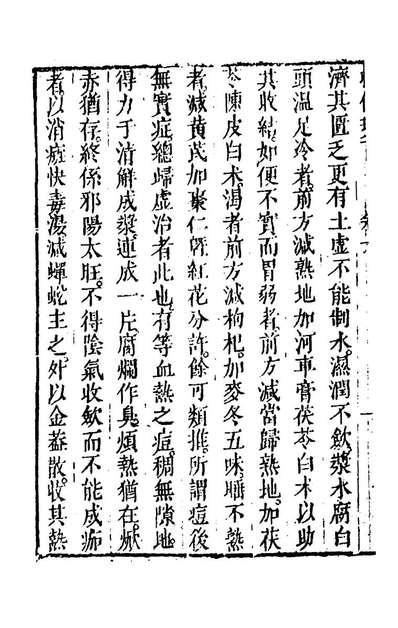 濟其匱乏更有土虛不能制水濕潤不斂漿水腐白
頭溫足冷者前方減熟地加河車膏茯苓白术以助
其收結如便不實而胃弱者前方減當歸熟地加茯
苓陳皮白术渴者前方減枸杞加麥冬五味睡不熟
者減黃芪加棗仁暨紅花分許餘可類推所謂痘後
無實症總歸虛治者此也有等血熱之痘稠無隙地
得力于清解成漿連成一片腐爛作臭煩熱猶在焮
赤猶存終係邪陽太旺不得陰氣收斂而不能成痂
者以消斑快毒湯減蟬蛻主之外以金蓋散收其熱